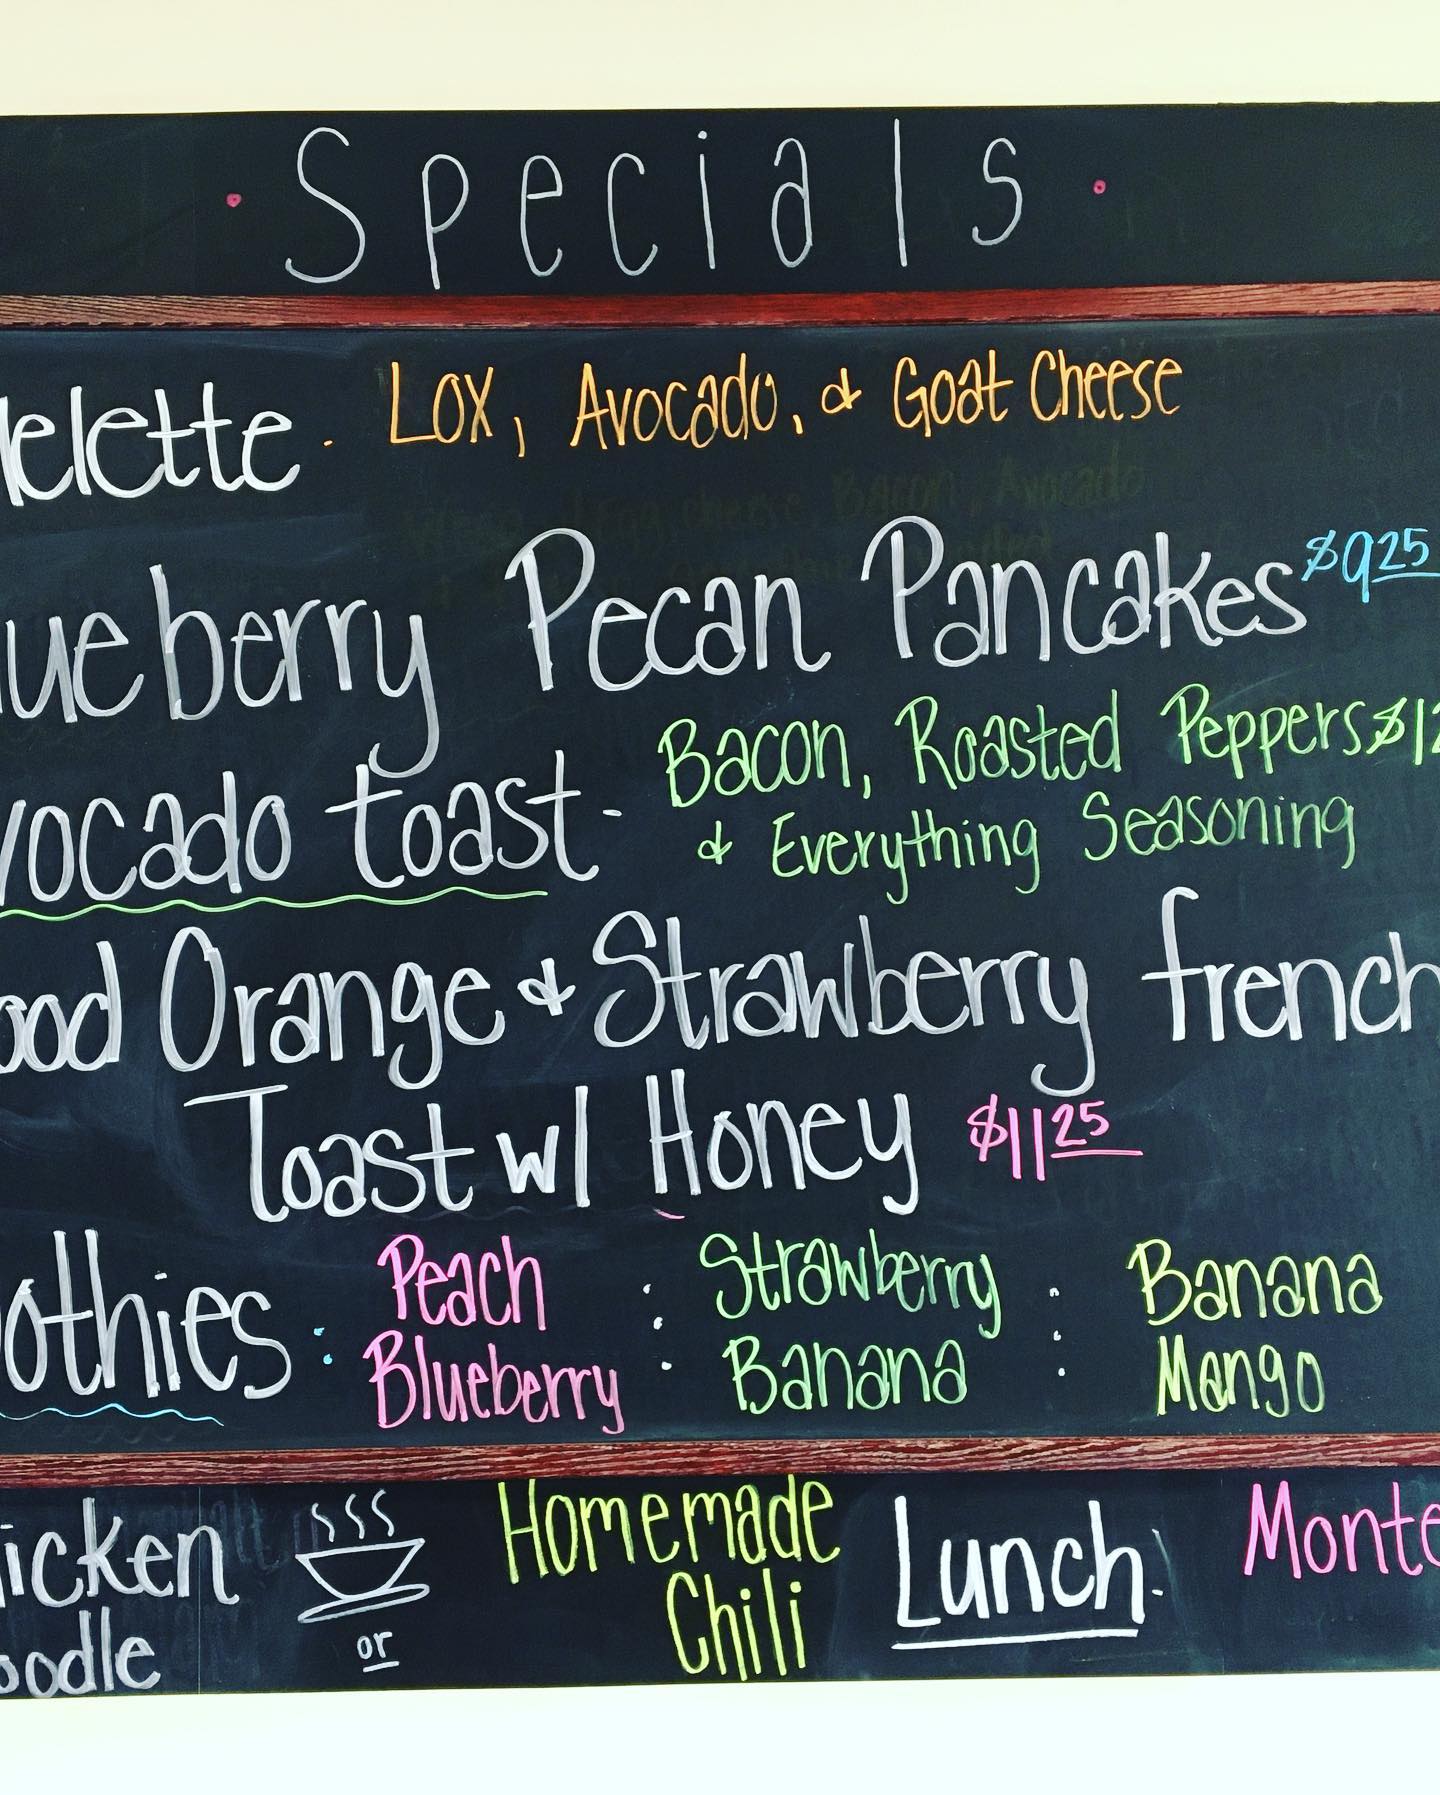 · Specials ·
elette. Lox, Avocado, & Goat Cheese
Bacon, Avocado
ueberry Pecan Pancakes $9.25
vocado toast - Bacon, Roasted Peppers $12
& Everything Seasoning
ood Orange & Strawberry french
Toast w/ Honey $11.25
othies : Peach Blueberry : Strawberry Banana : Banana Mango
icken oodle or Homemade Chili Lunch. Monte